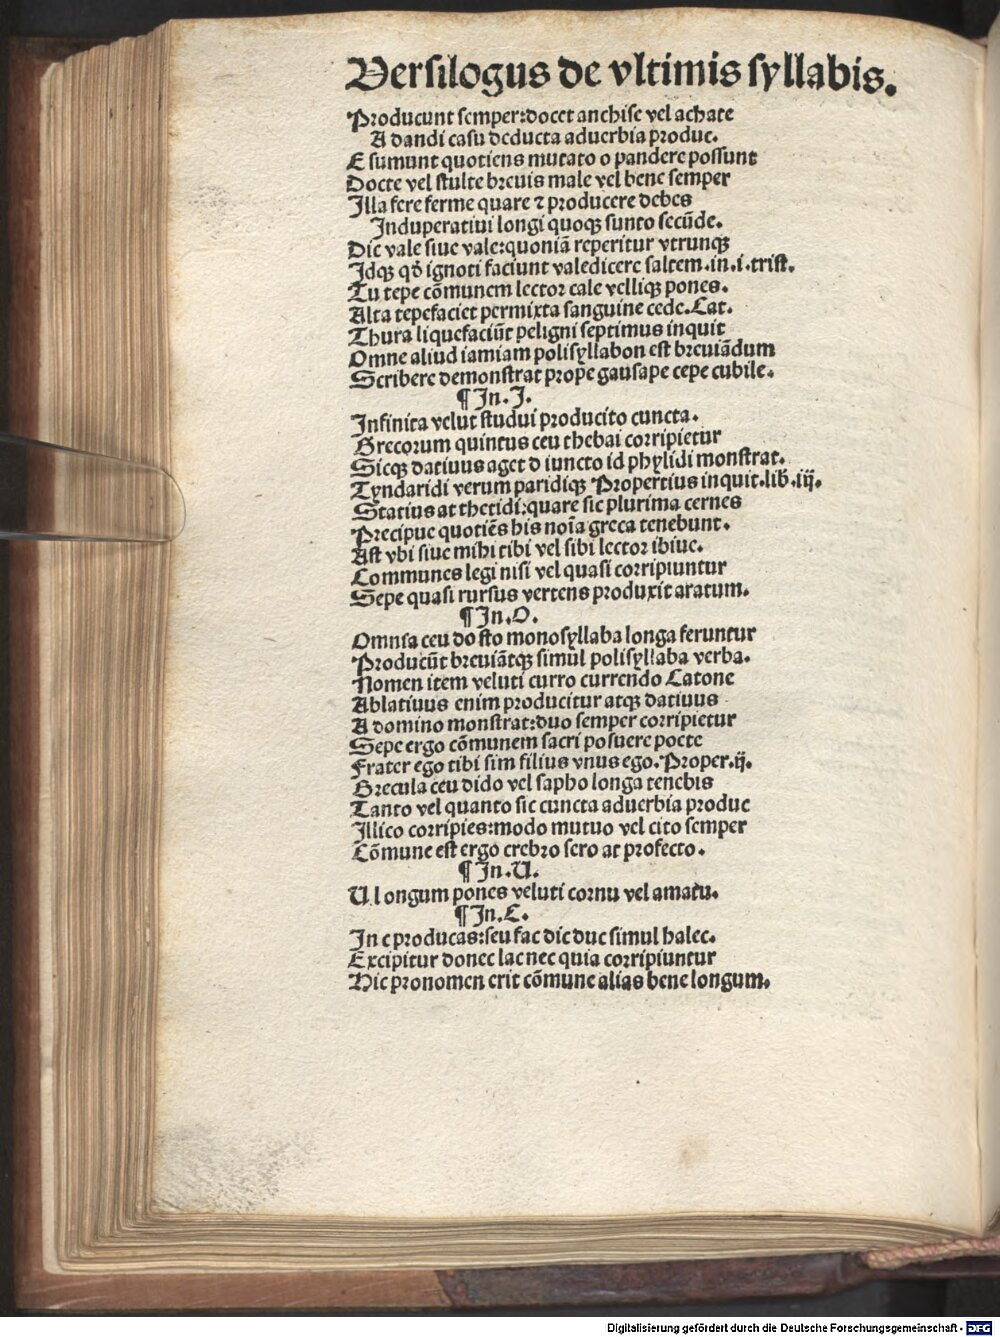 Versilogus de vltimis syllabis.
Producunt semper: docet anchise vel achate
A dandi casu deducta aduerbia produc.
E sumunt quotiens mutato o pandere possunt
Docte vel stulte breuis male vel bene semper
Illa fere ferme quare ⁊ producere debes
Induperatiui longi quoqꝫ sunto secūde.
Dic vale siue vale: quoniā reperitur vtrunqꝫ
Idqꝫ qđ ignoti faciunt valedicere saltem.in.i.trist.
Tu tepe cōmunem lector cale velliqꝫ pones.
Alta tepefaciet permixta sanguine cede.Cat.
Thura liquefaciūt peligni septimus inquit
Omne aliud iamiam polisyllabon est breuiādum
Scribere demonstrat prope gausape cepe cubile.
¶ In.I.
Infinita velut studui producito cuncta.
Grecorum quintus ceu thebai corripietur
Sicqꝫ datiuus aget d iuncto id phylidi monstrat.
Tyndaridi verum paridiqꝫ Propertius inquit.lib.iij.
Statius at thetidi: quare sic plurima cernes
Precipue quotiēs his noīa greca tenebunt.
Ast vbi siue mihi tibi vel sibi lector ibiue.
Communes legi nisi vel quasi corripiuntur
Sepe quasi rursus vertens produxit aratum.
¶ In.O.
Omnia ceu do sto monosyllaba longa feruntur
Producūt breuiātqꝫ simul polisyllaba verba.
Nomen item veluti curro currendo Catone
Ablatiuus enim producitur atqꝫ datiuus
A domino monstrat: duo semper corripietur
Sepe ergo cōmunem sacri posuere poete
Frater ego tibi sim filius vnus ego.Proper.ij.
Grecula ceu dido vel sapho longa tenebis
Tanto vel quanto sic cuncta aduerbia produc
Illico corripies: modo mutuo vel cito semper
Cōmune est ergo crebro sero at profecto.
¶ In.U.
U longum pones veluti cornu vel amatu.
¶ In.C.
In c producas: seu fac dic duc simul halec.
Excipitur donec lac nec quia corripiuntur
Hic pronomen erit cōmune alias bene longum.
Digitalisierung gefördert durch die Deutsche Forschungsgemeinschaft - DFG